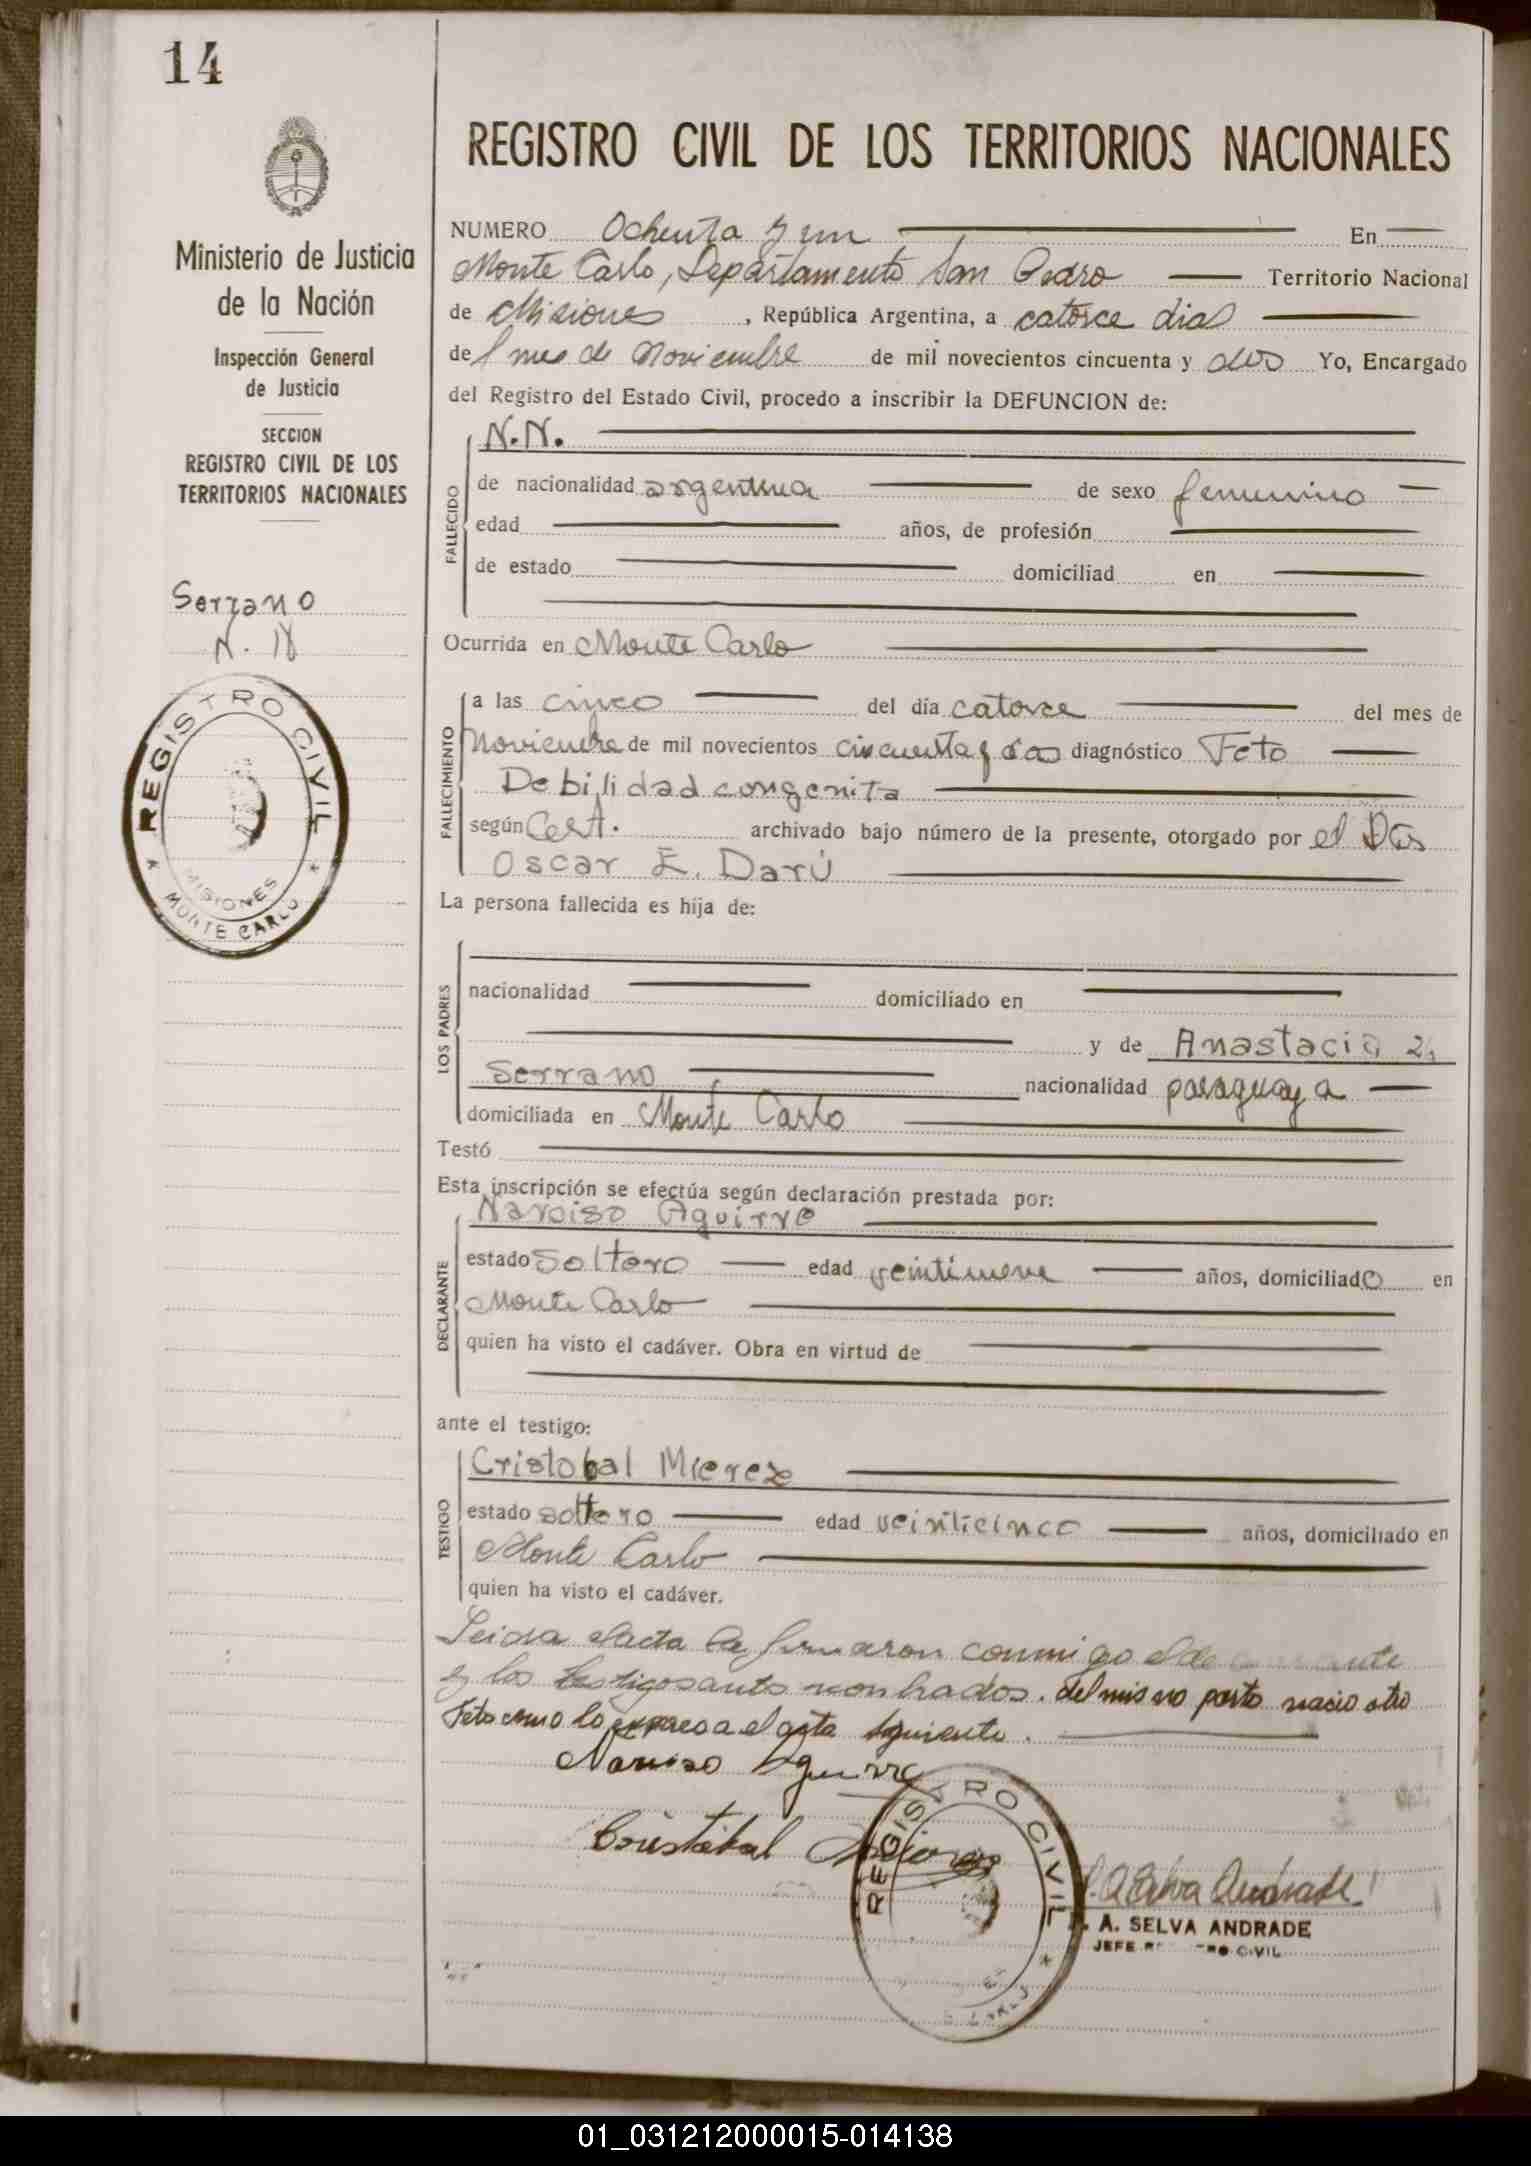 14
Ministerio de Justicia
de la Nación
Inspección General
de Justicia
SECCION
REGISTRO CIVIL DE LOS
TERRITORIOS NACIONALES
Serrano
N. N
REGISTRO CIVIL
MISIONES
* MONTE CARLO *
REGISTRO CIVIL DE LOS TERRITORIOS NACIONALES
NUMERO Ochenta y un En
Monte Carlo, Departamento San Pedro Territorio Nacional
de Misiones , República Argentina, a catorce dias
del mes de Noviembre de mil novecientos cincuenta y dos Yo, Encargado
del Registro del Estado Civil, procedo a inscribir la DEFUNCION de:
FALLECIDO
N.N.
de nacionalidad argentina de sexo femenino
edad años, de profesión
de estado domiciliad en
Ocurrida en Monte Carlo
FALLECIMIENTO
a las cinco del día catorce del mes de
Noviembre de mil novecientos cincuenta y dos diagnóstico Feto
Debilidad congenita
según Cert. archivado bajo número de la presente, otorgado por el
Oscar E. Darú
La persona fallecida es hija de:
LOS PADRES
nacionalidad domiciliado en
y de Anastacia
Serrano nacionalidad paraguaya
domiciliada en Monte Carlo
Testó
Esta inscripción se efectúa según declaración prestada por:
DECLARANTE
Narciso Aguirre
estado soltero edad veintinueve años, domiciliado en
Monte Carlo
quien ha visto el cadáver. Obra en virtud de
ante el testigo:
TESTIGO
Cristobal Mierez
estado soltero edad veinticinco años, domiciliado en
Monte Carlo
quien ha visto el cadáver.
Leida el acta la firmaron conmigo el
y los testigos antes nombrados. del mismo parto nacio otro
Feto como lo expreso a el acta siguiente.
Narciso Aguirre
Cristobal
REGISTRO CIVIL
A. SELVA ANDRADE
JEFE REGISTRO CIVIL
01_031212000015-014138